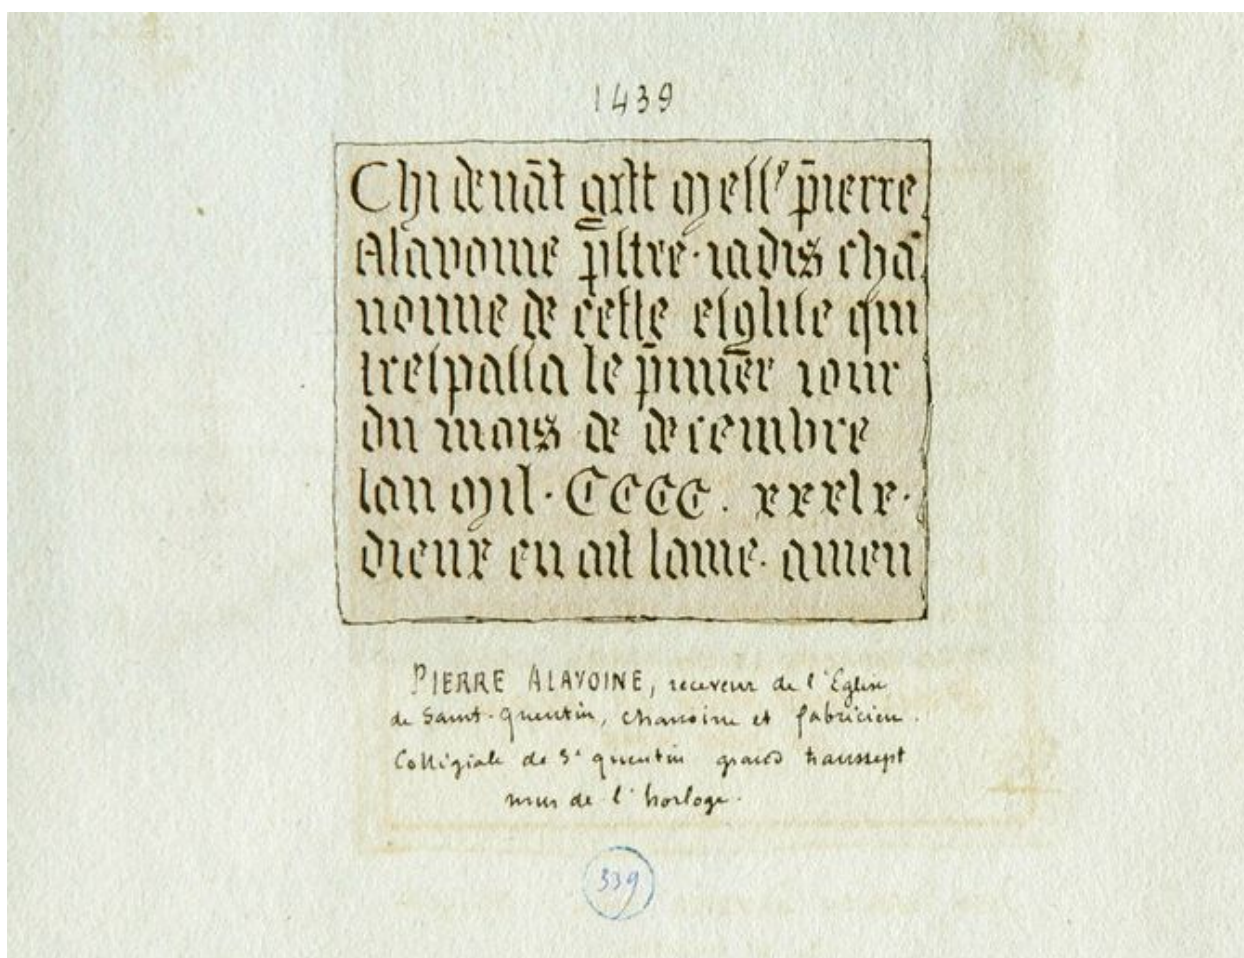 1439
Chi devāt gist mess' p̄ierre
Alavoine p̄bstre · iadis chā
nonne de ceste esglise qui
trespassa le p̄mier iour
du mois de decembre
lan mil · CCCC · xxxix ·
dieux en ait lame · amen
PIERRE ALAVOINE, receveur de l'Eglise
de Saint-Quentin, chanoine et fabricien.
Collégiale de St quentin grand transsept
mur de l'horloge.
339